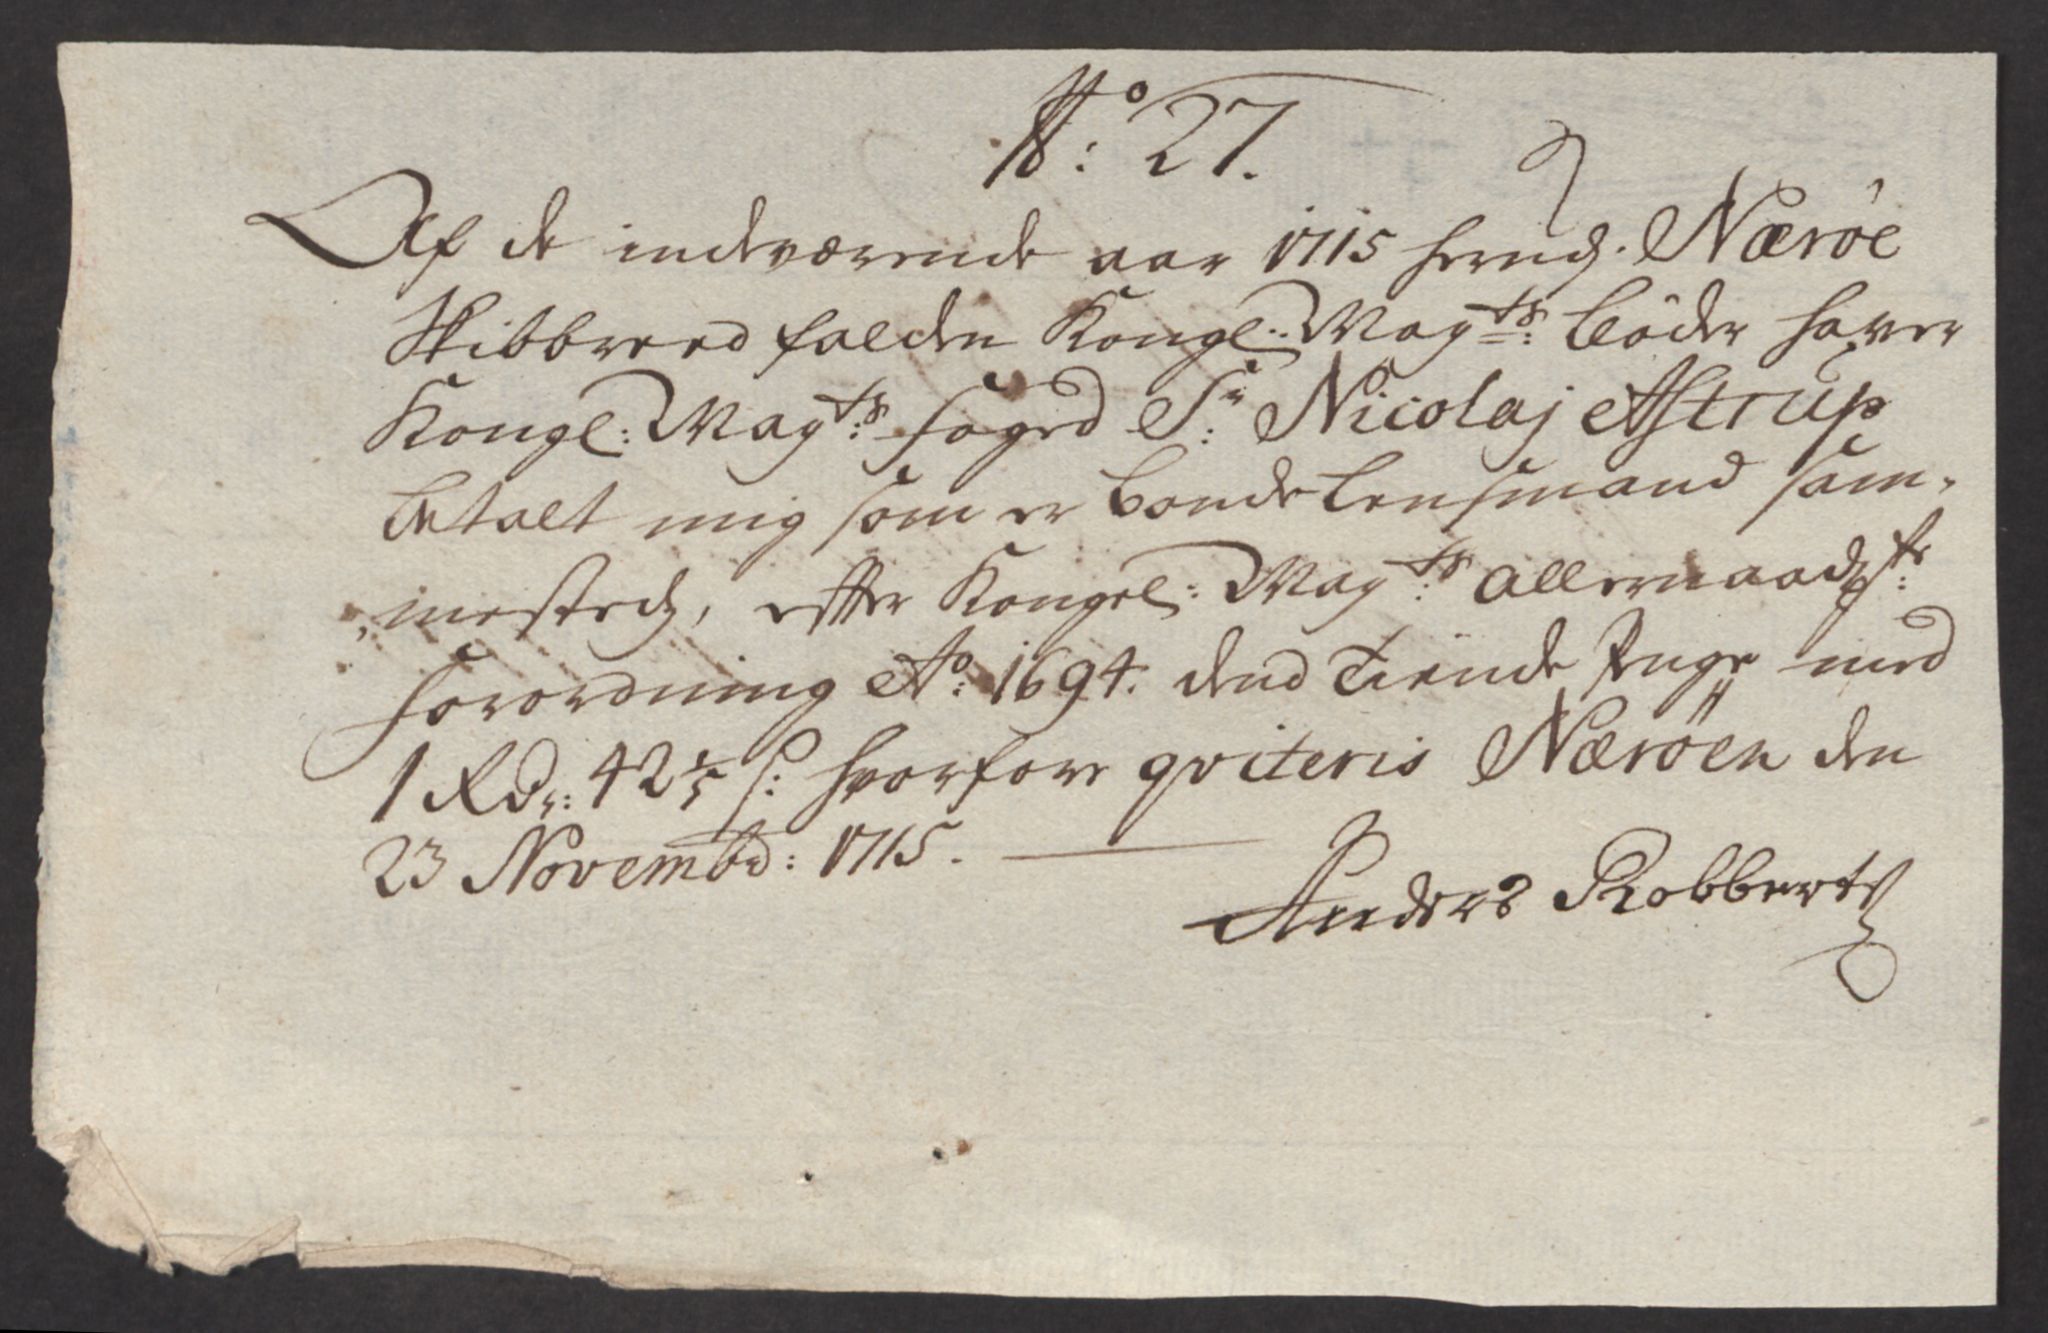 No: 27.
Af de indeværende aar 1715 her udj. Nærøe
Skibbreed falden Kongl: Mayts: böder haver
Kongl: Mayts: foged Sr: Nicolaj Astrup
betalt mig som er bonde lensmand sam-
mestedz, effter Kongel: Mayts: allernaadgste:
forordning Ao: 1694. dend tiende penge med
1 Rdr: 42 1/5 s: hvorfore qviteris Næröen den
23 Novembd: 1715.
Anders Robbertz